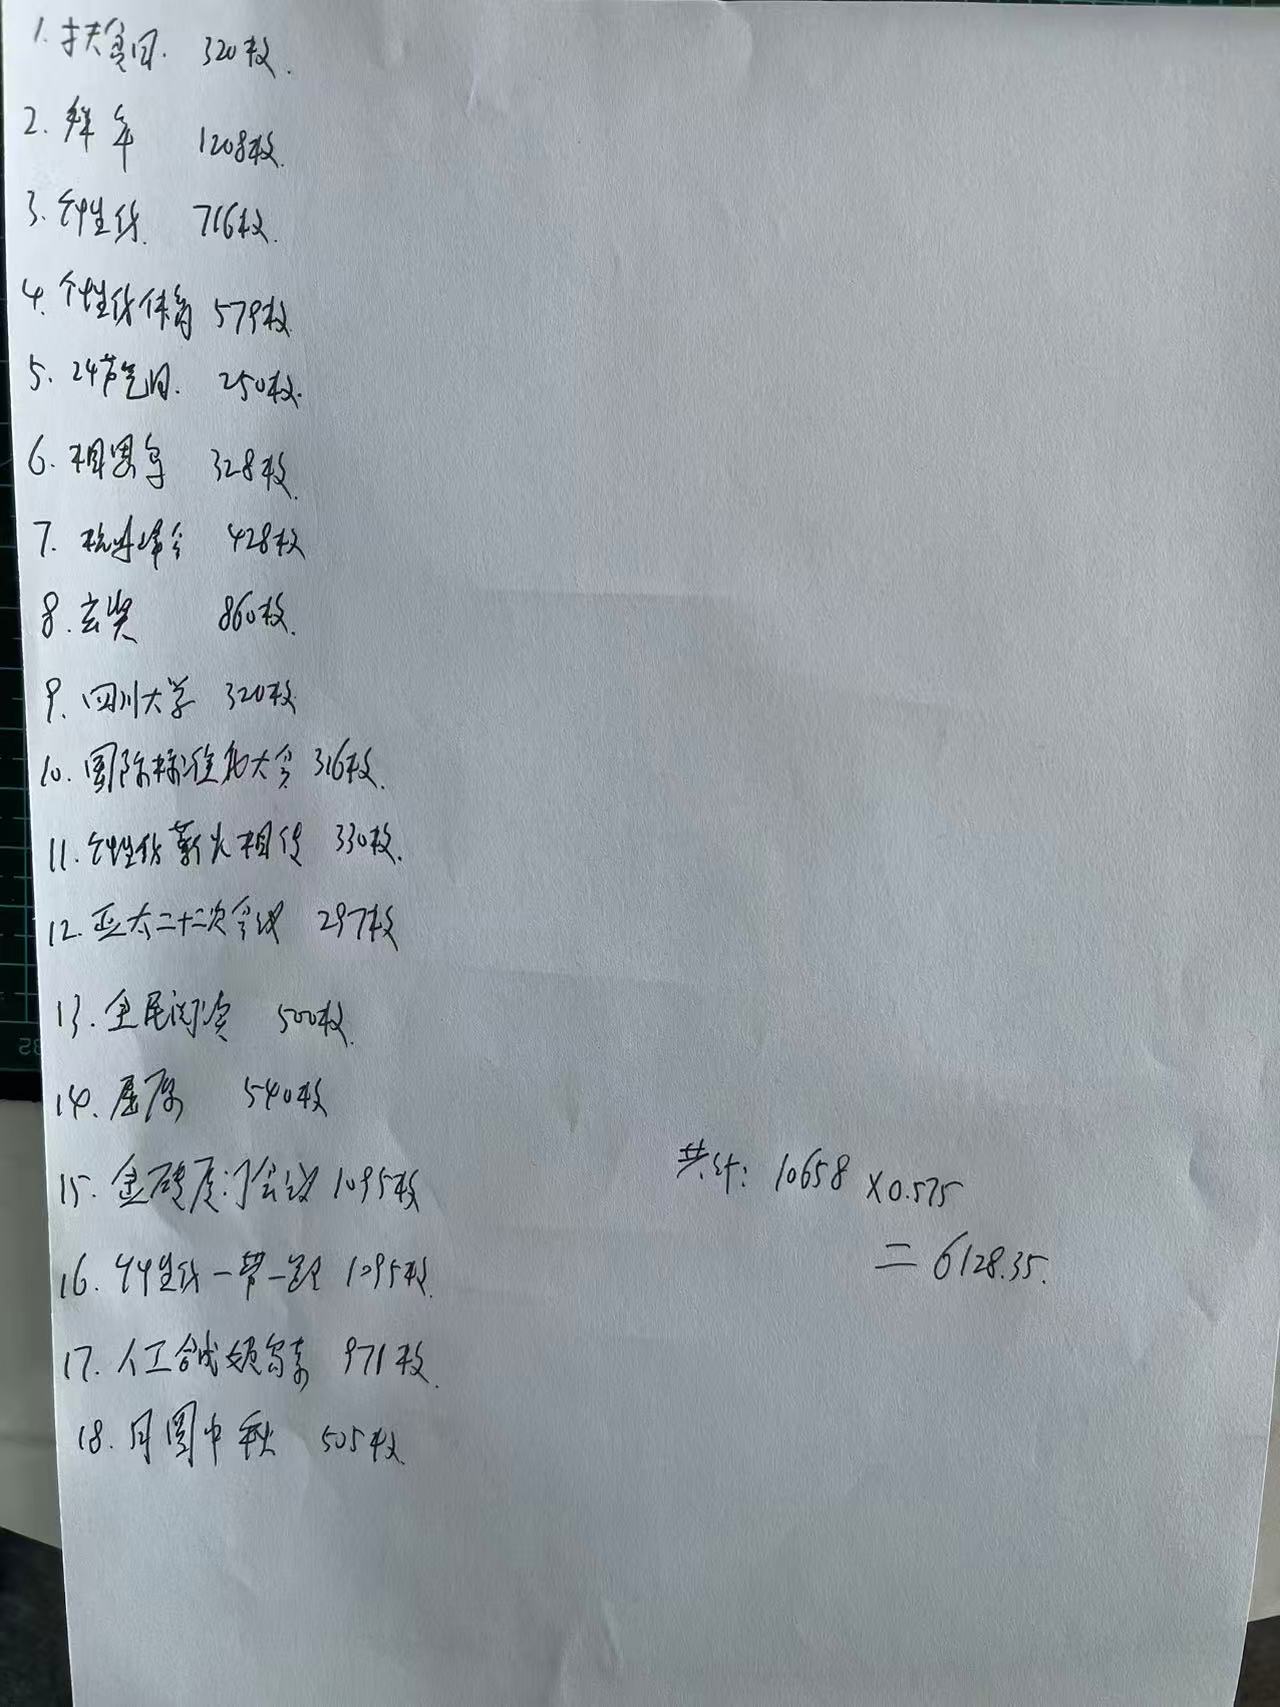 1. 扶贫日. 320枚.
2. 拜年 1208枚.
3. 个性化. 716枚.
4. 个性化体育 579枚
5. 24节气日. 250枚.
6. 相思鸟 328枚.
7. 杭州峰会 428枚
8. 玄奘 860枚.
9. 四川大学 320枚
10. 国际标准化大会 316枚.
11. 个性化薪火相传 330枚.
12. 亚太二十二次会议 297枚
13. 全民阅读 500枚.
14. 屈原 540枚
15. 金砖厦门会议 1095枚
共计: 10658 ×0.575
= 6128.35.
16. 个性化一带一路 1095枚.
17. 人工合成胰岛素 971枚.
18. 月圆中秋 505枚